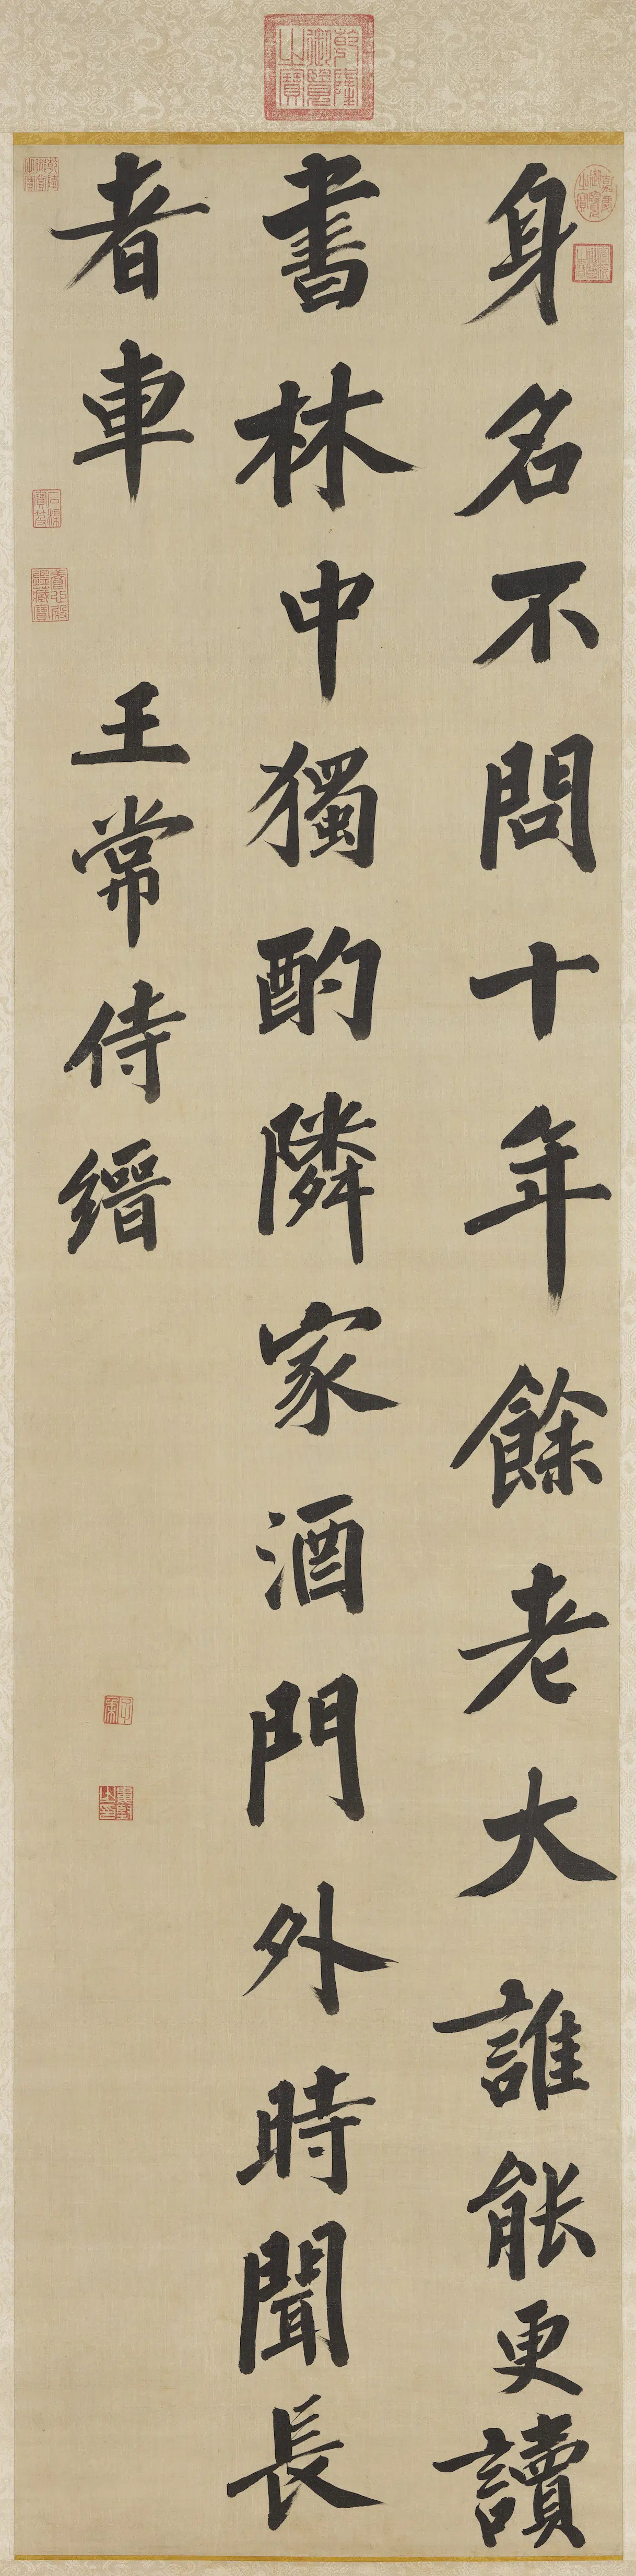 身名不問十年餘老大誰能更讀
書林中獨酌隣家酒門外時聞長
者車
王常侍縉
乾隆御覽之寶